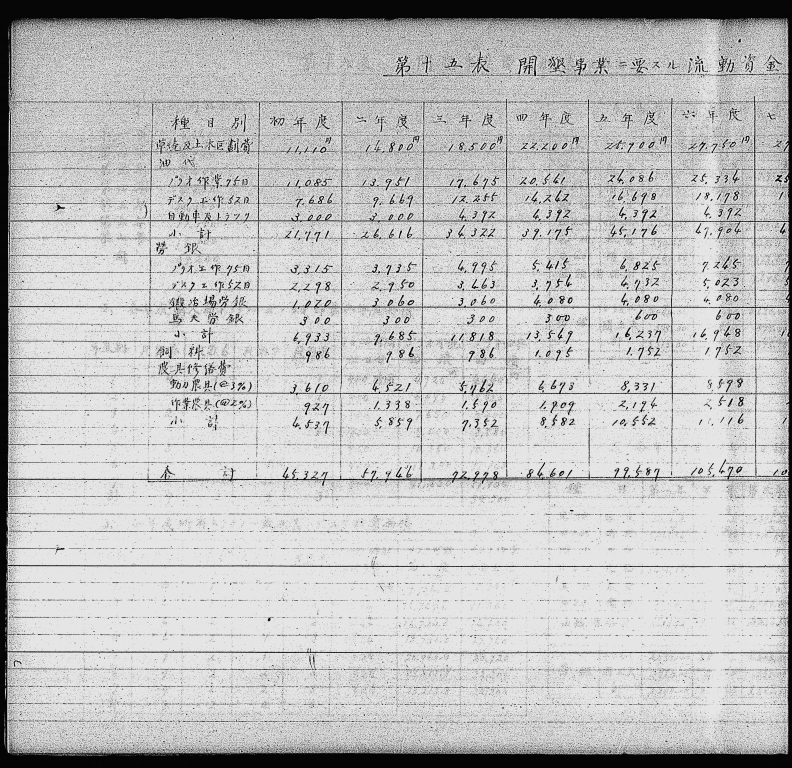 第十五表 開墾事業ニ要スル流動資金
種目別 初年度 二年度 三年度 四年度 五年度 六年度 七
草焼及土木区劃費 11,110円 14,800円 18,500円 22,200円 25,900円 27,750円
油代
プラオ作業75日 11,085 13,951 17,675 20,561 24,086 25,334
デスク工作52日 7,686 9,669 12,255 14,262 16,698 18,178
自動車及トラック 3,000 3,000 4,392 4,392 4,392 4,392
小計 21,771 26,616 34,322 39,175 45,176 47,904
労銀
プラオ工作75日 3,315 3,735 4,995 5,415 6,825 7,245
デスク工作52日 2,298 2,750 3,463 3,754 4,732 5,023
鍛冶場労銀 1,020 3,060 3,060 4,080 4,080 4,080
馬夫労銀 300 300 300 300 600 600
小計 6,933 9,685 11,818 13,549 16,237 16,948
飼料 986 986 986 1,095 1,752 1,752
農具修繕費
動力農具(@3%) 3,610 4,521 5,762 6,673 8,331 8,598
作業農具(@2%) 927 1,338 1,590 1,909 2,194 2,518
小計 4,537 5,859 7,352 8,582 10,552 11,116
合計 45,327 57,946 72,978 84,601 99,587 105,470